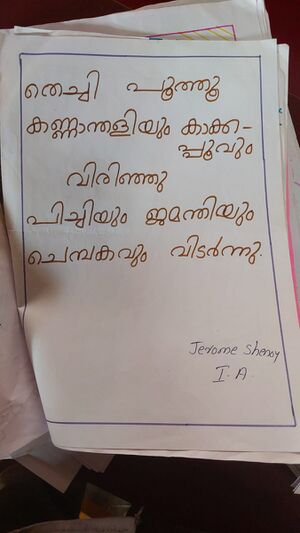 തെച്ചി പൂത്തൂ
കണ്ണാന്തളിയും കാക്ക-
പ്പൂവും
വിരിഞ്ഞു
പിച്ചിയും ജമന്തിയും
ചെമ്പകവും വിടർന്നു.
Jerome Shenoy
I.A